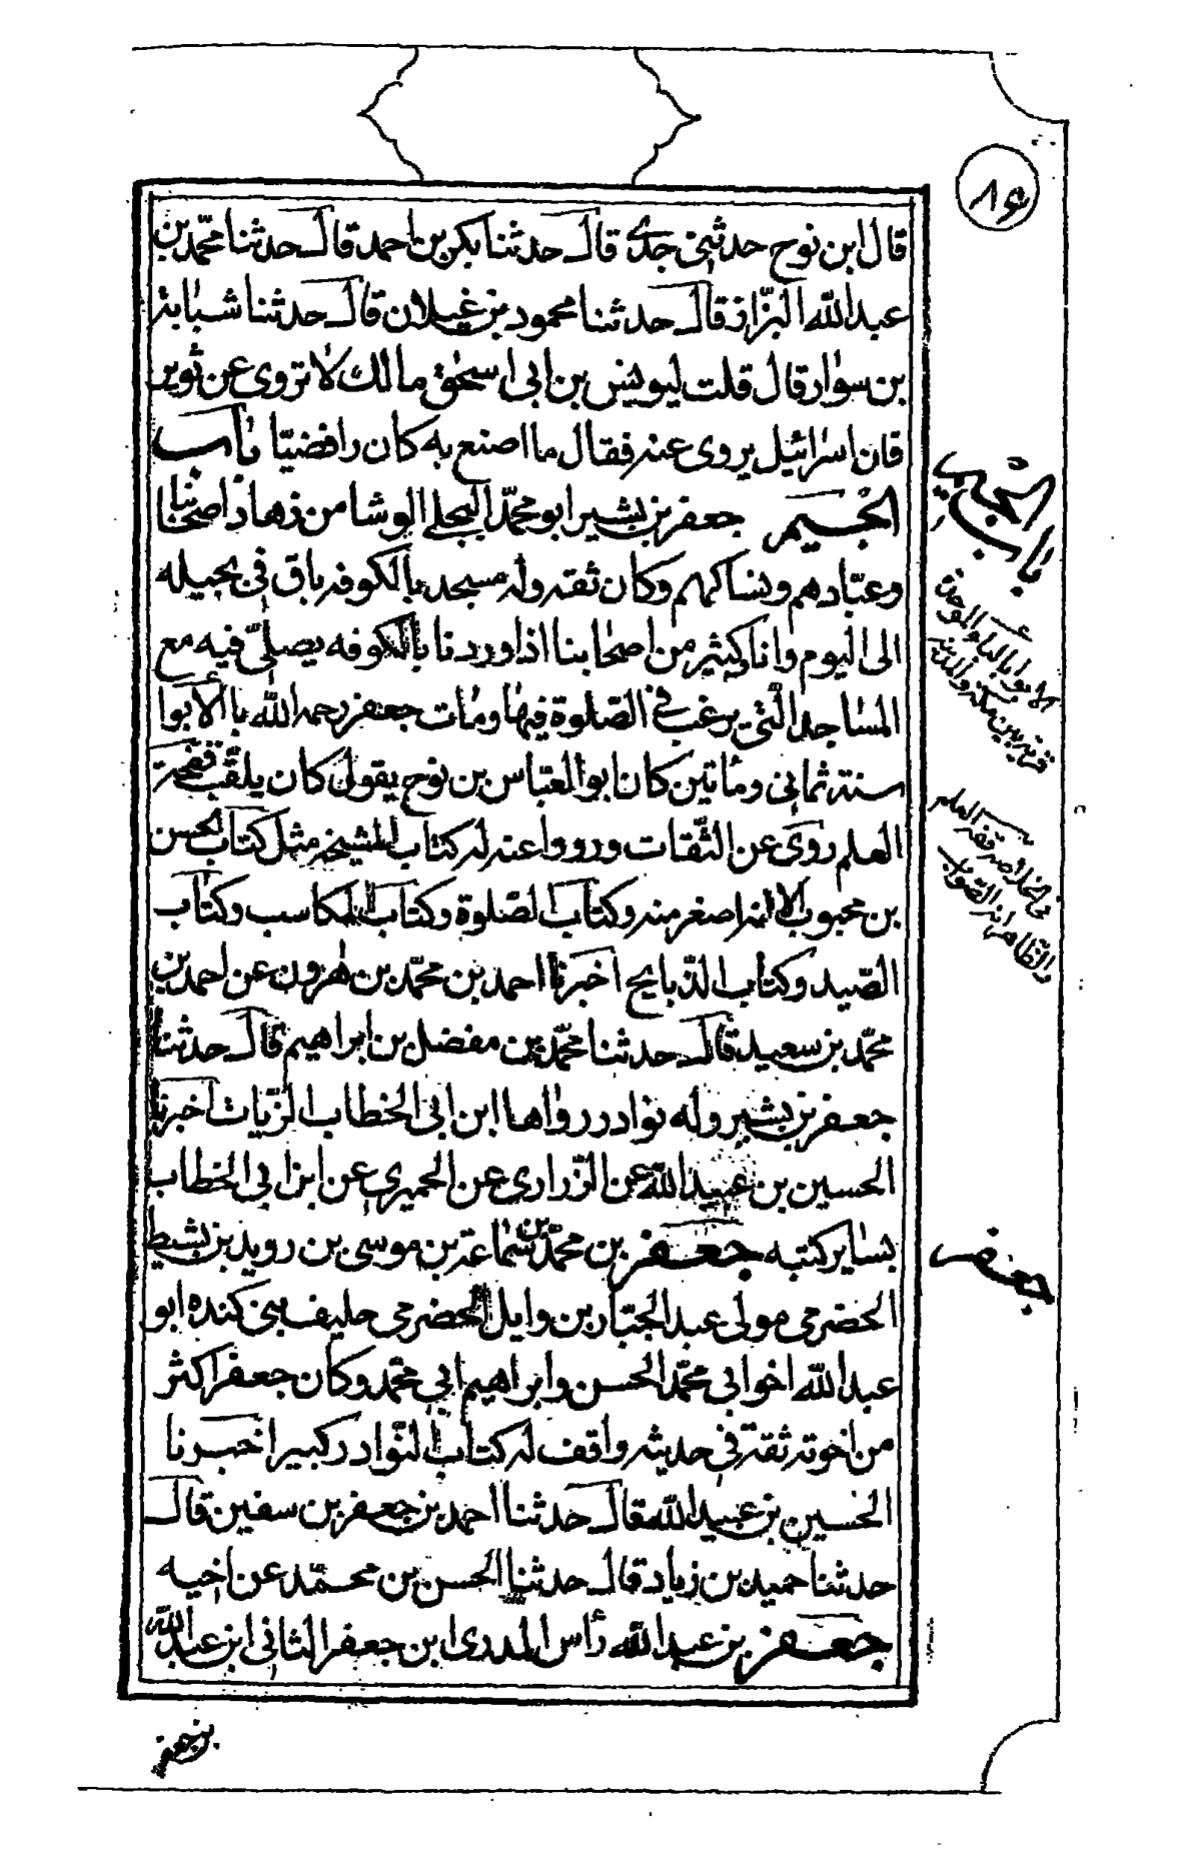 ٨٦
قال ابن نوح حدثنى جدى قال حدثنا بكر بن احمد قال حدثنا محمّد بن
عبدالله البزّاز قال حدثنا محمود بن غيلان قال حدثنا شبابة
بن سوار قال قلت ليونس بن ابى اسحق مالك لا تروى عن ثوير
فان اسرائيل يروى عنه فقال ما اصنع به كان رافضيّا باب
الجيم جعفر بن بشير ابو محمّد البجلى الوشا من زهاد اصحابنا
وعبّادهم ونساكهم وكان ثقه وله مسجد بالكوفه باق فى بجيله
الى اليوم وانا وكثير من اصحابنا اذا وردنا بالكوفه يصلّى فيه مع
المساجد الّتى يرغب فى الصّلوة فيها ومات جعفر رحمه الله بالابوا
سنة ثمانى ومأتين كان ابو العبّاس بن نوح يقول كان يلقّب فقحة
العلم روى عن الثّقات ورووا عنه له كتاب المشيخه مثل كتاب الحسن
بن محبوب الا انه اصغر منه وكتاب الصّلوة وكتاب المكاسب وكتاب
الصّيد وكتاب الذّبايح اخبرنا احمد بن محمّد بن هرون عن احمد بن
محمّد بن سعيد قال حدثنا محمّد بن مفضل بن ابراهيم قال حدثنا
جعفر بن بشير وله نوادر رواها ابن ابى الخطاب الزّيات اخبرنا
الحسين بن عبيدالله عن الزّرارى عن الحميرى عن ابن ابى الخطاب
بساير كتبه جعفر بن محمّد بن سماعة بن موسى بن رويد بن نشيط
الحضرمى مولى عبد الجبّار بن وايل الحضرمى حليف بنى كنده ابو
عبدالله اخو ابى محمّد الحسن وابراهيم ابى محمّد وكان جعفر اكثر
من اخوته ثقة فى حديثه واقف له كتاب النّوادر كبير اخبرنا
الحسين بن عبيدالله قال حدثنا احمد بن جعفر بن سفين قال
حدثنا حميد بن زياد قال حدثنا الحسن بن محمّد عن اخيه
جعفر بن عبدالله رأس المدرى ابن جعفر الثانى ابن عبدالله
بن جعفر
باب الجيم
الابوا بالباء الموحدة
قرية بين مكة والمدينة
فى الخلاصه قفة العلم
والظّاهر انه الصّواب
جعفر